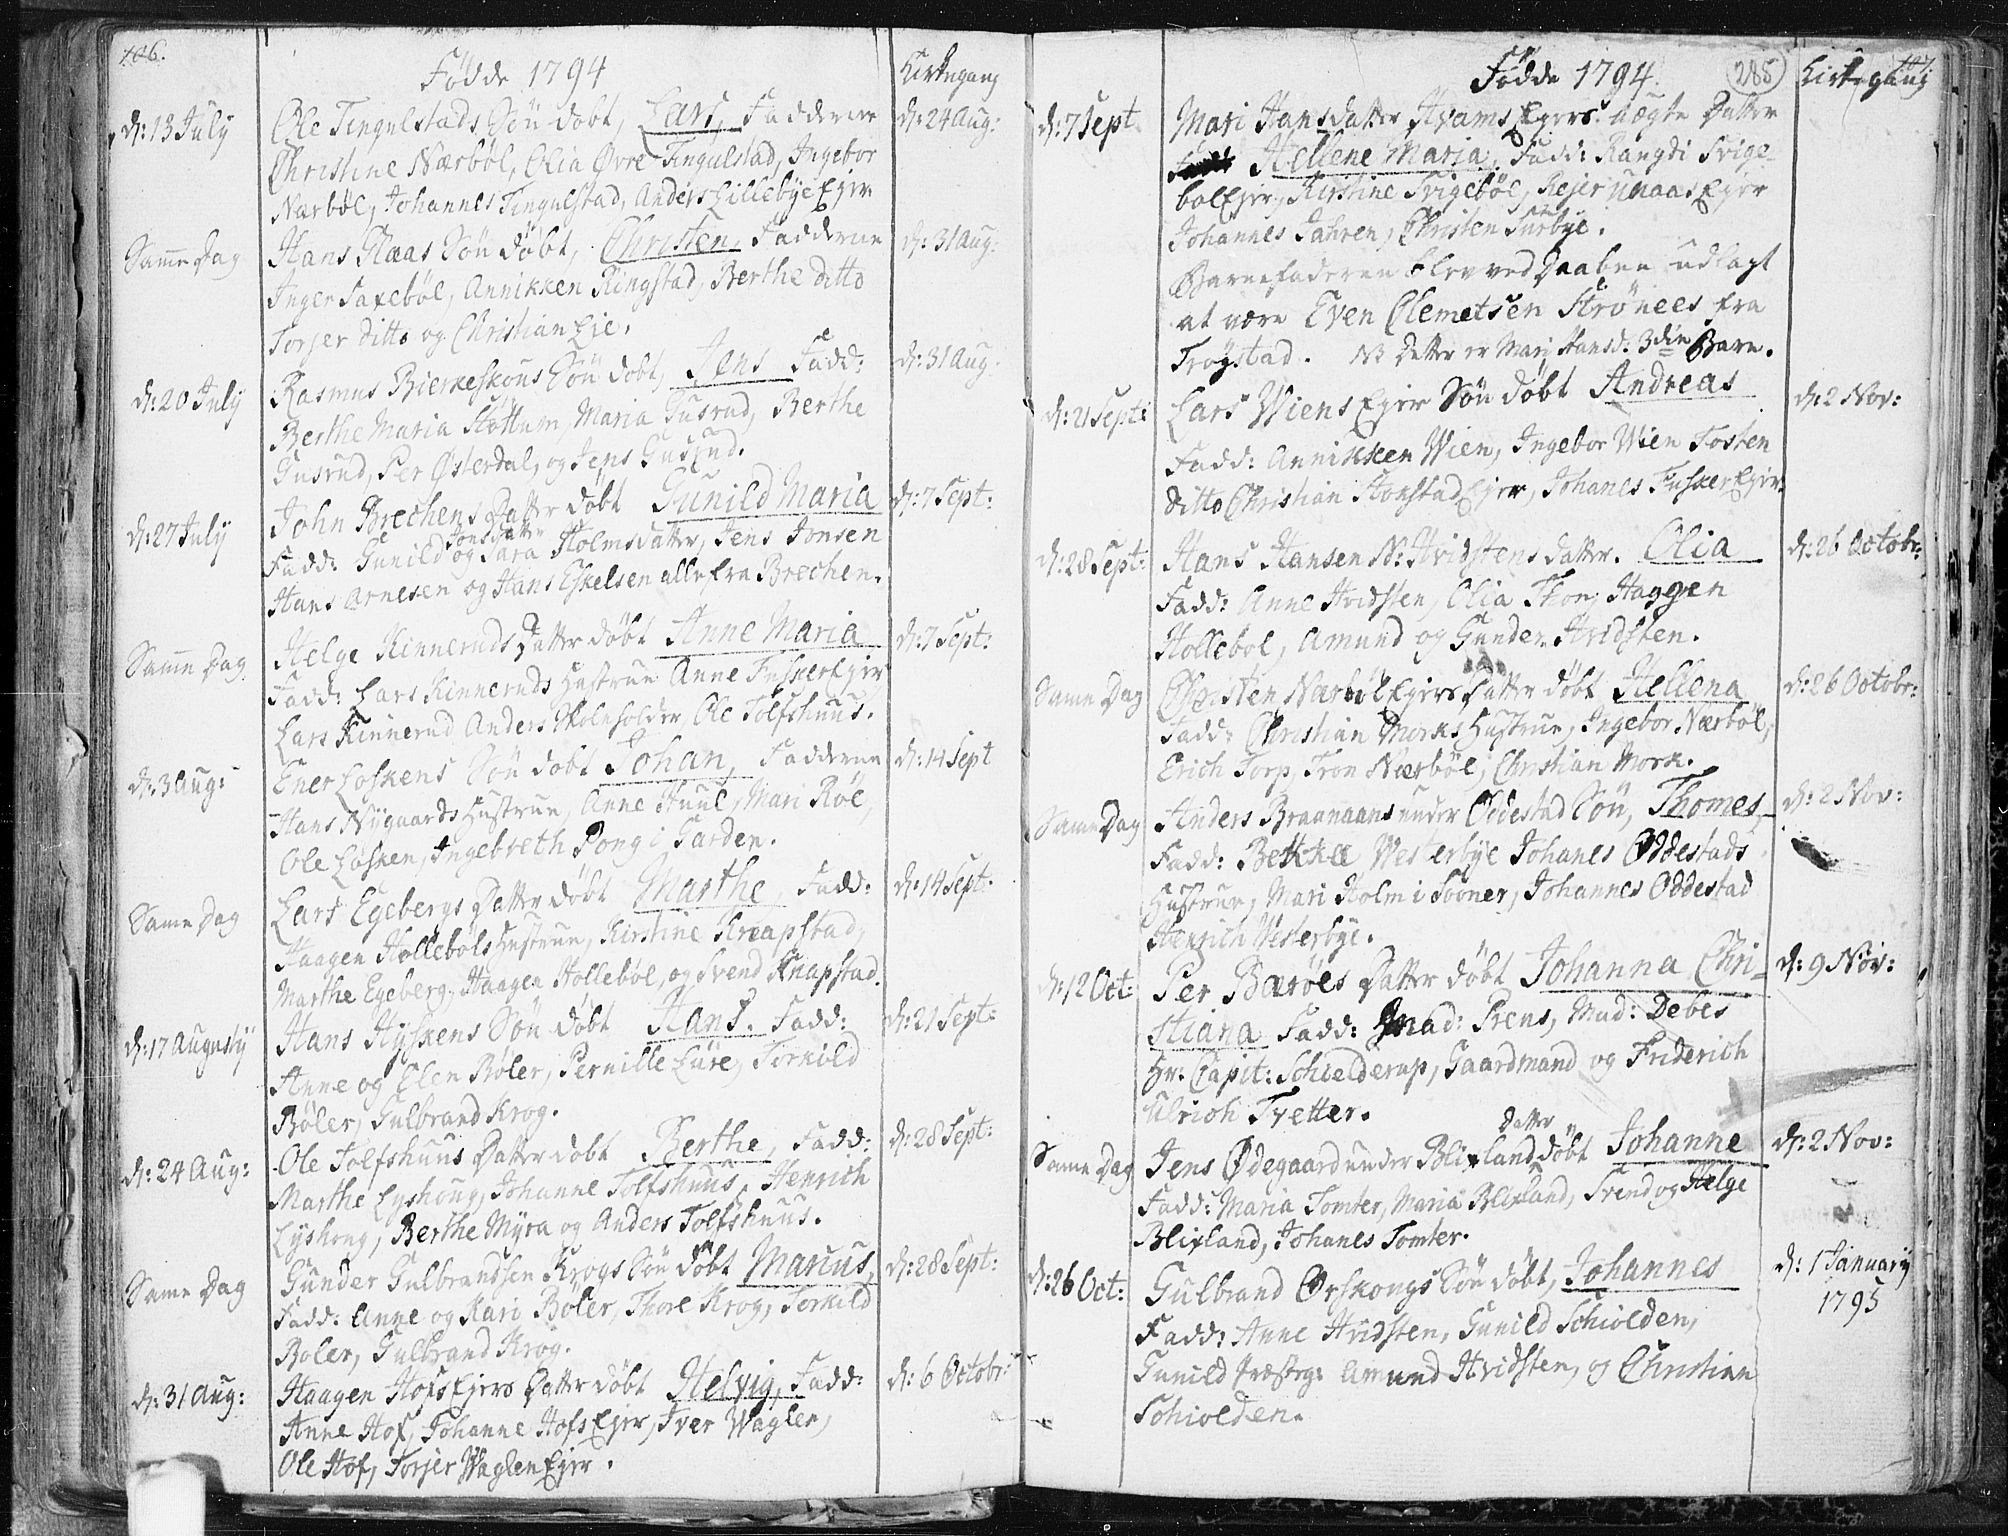 106.
Födde 1794
Kirkegang
d: 13 July
Ole Tingulstads Sön döbt, Lars, Fadderne
d: 24 Aug:
Christine Nærböl, Olia Øvre Tingulstad, Ingebor
Nærböl, Johannes Tingulstad, Anders Lillebye Ejer
Samme Dag
Hans Haas Sön döbt, Christen, Fadderne
d: 31 Aug:
Inger Saxeböl, Annikken Ringstad, Berthe ditto
Torjer ditto og Christian Lie.
d: 20 July
Rasmus Bierkeskous Sön döbt, Jens Fadd:
d: 31 Aug:
Berthe Maria Hottum, Maria Gusrud, Berthe
Gusrud, Per Østerdal, og Jens Gusrud.
d: 27 July
John Brechens Datter döbt Gunild Maria
d: 7 Sept:
Jonsdatter
Fadd: Gunild og Sara Holmsdatter, Jens Jonsen
Hans Arnesen og Hans Eskelsen alle fra Brechen.
Samme Dag
Helge Kinneruds Datter döbt Anne Maria
d: 7 Sept:
Fadd: Lars Kinneruds Hustrue Anne Fusker Ejer
Lars Kinnerud Anders Skoleholder Ole Tolfshuus.
d: 3 Aug:
Ener Loskens Sön döbt Johan, Fadderne
d: 14 Sept
Hans Nygaards Hustrue, Anne Huul, Mari Röe,
Ole Losken, Ingebreth Pong i Garden.
Same Dag
Lars Egebergs Datter döbt Marthe, Fadd:
d: 14 Sept:
Haagen Holleböls Hustrue, Kirstine Knapstad,
Marthe Egeberg, Haagen Holleböl, og Svend Knapstad.
d: 17 Augusty
Hans Hyskens Sön döbt Hans. Fadd:
d: 21 Sept:
Anne og Elen Böler, Pernille Lure, Torkild
Böler, Gulbrand Krog.
d: 24 Aug:
Ole Tolfshuus Datter döbt Berthe, Fadd:
d: 28 Sept:
Marthe Lyshoug, Johanne Tolfshuus, Henrich
Lyshoug, Berthe Myra og Anders Tolfshuus.
Same Dag
Gunder Gulbrandsen Krogs Sön döbt Marius,
d: 28 Sept:
Fadd: Anne og Kari Böler, Thore Krog, Torkild
Boler, Gulbrand Krog.
d: 31 Aug:
Haagen Hofs Ejers Datter döbt Helvig, Fadd:
d: 6 Octobr:
Anne Hof, Johanne Hofs Ejer, Iver Waglen,
Ole Hof, Torjer Waglen Ejer.
Födde 1794.
285
Kirkegang
d: 7 Sept.
Mari Hansdatter Hvams Ejers uægte Datter
Hellene Maria, Fadd: Rangdi Svige-
bol Ejer, Kirstine Svigeböl, Rejer Unaas Ejer
Johannes Jahren, Christen Surbye.
Barnefaderen blev ved Daaben udlagt
at være Even Clemetsen Strönees fra
Trögstad. NB Dette er Mari Hansd: 3die Barn.
d: 21 Sept:
Lars Wiens Ejer Sön döbt Andreas
d: 2 Nov:
Fadd: Annikken Wien, Ingebor Wien Tosten
ditto Christian Honstad Ejer, Johanes Fusker Ejer.
d: 28 Sept:
Hans Hansen N: Hvidstens datter. Olia
d: 26 Octobr:
Fadd: Anne Hvidsten, Olia Thon, Haagen
Hollebol, Amund og Gunder Hvidsten.
Same Dag
Christen Nærböl Ejers Datter döbt Hellena
d: 26 Octobr:
Fadd: Christian Morks Hustrue, Ingebor Nærböl,
Erich Torp, Tron Nærböl, Christian Mork.
Same Dag
Anders Braanaans under Oddestad Sön, Thomes,
d: 2 Nov:
Fadd: Westerbye Johanes Oddestads
Hustrue, Mari Holm i Sooner, Johannes Oddestad
Henrich Vesterbye.
d: 12 Oct:
Per Baröes Datter döbt Johanna Chri-
d: 9 Nov:
stiana Fadd: Mad: Prens, Mad: Debes
Hr: Capit: Schielderup, Gaardmand og Friderich
Ulrich Tvetter.
Datter
Same Dag
Jens Ødegaard under Blixland döbt Johanne
d: 2 Nov:
Fadd: Maria Tomter, Maria Blixland, Svend og Helge
Blixland, Johanes Tomter.
d: 26 Oct:
Gulbrand Orskougs Sön döbt, Johannes
d: 1 January
1795
Fadd: Anne Hvidsten, Gunild Schiolden,
Gunild Præsteg: Amund Hvidsten, og Christian
Schiolden.